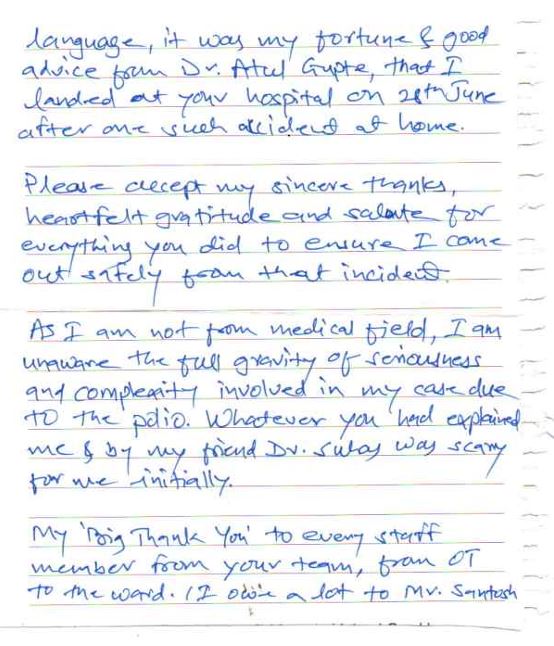 language, it was my fortune & good
advice from Dr. Atul Gupte, that I
landed at your hospital on 28th June
after one such accident at home.
Please accept my sincere thanks,
heartfelt gratitude and salute for
everything you did to ensure I come
out safely from that incident.
As I am not from medical field, I am
unaware the full gravity of seriousness
and complexity involved in my case due
to the polio. Whatever you had explained
me & by my friend Dr. Suhas was scary
for me initially.
My 'Big Thank You' to every staff
member from your team, from OT
to the ward. (I owe a lot to Mr. Santosh